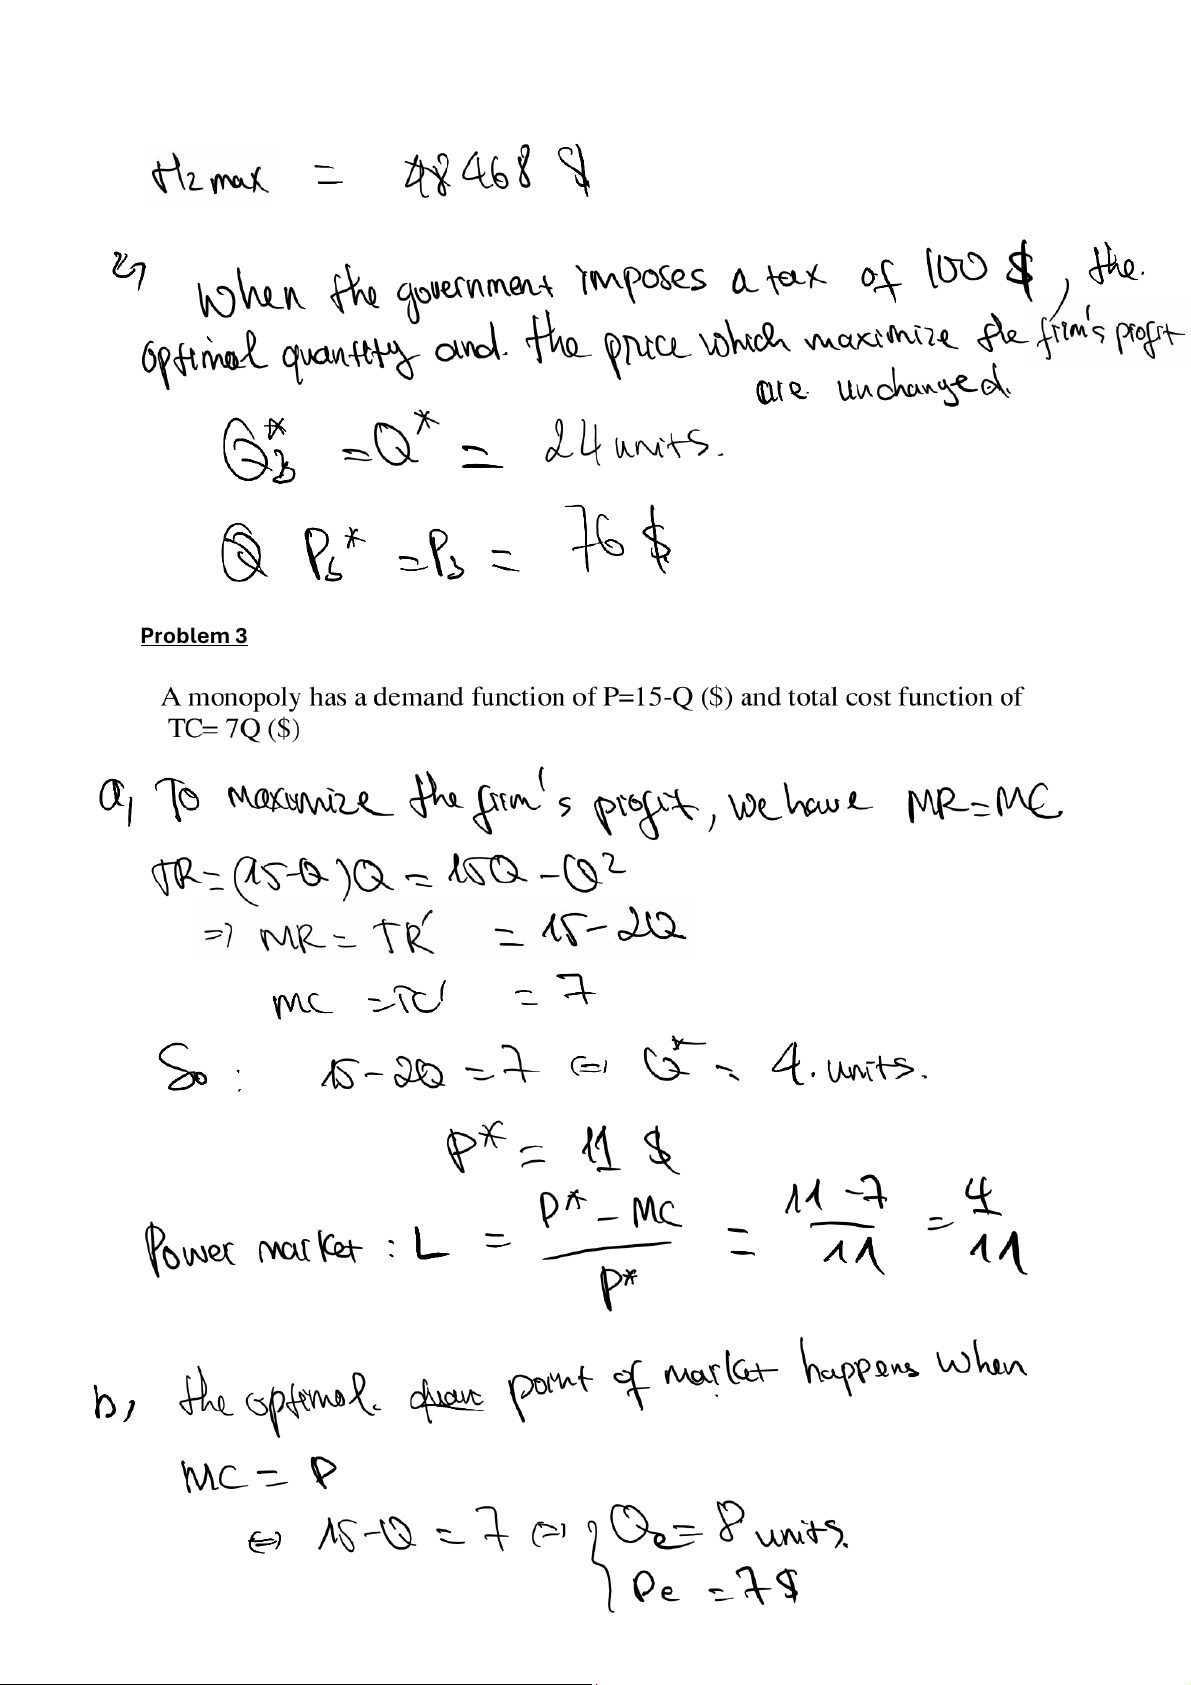 π2 max = 48468 $
2, When the government imposes a tax of 100 $, the
optimal quantity and the price which maximize the firm's profit
are unchanged.
Q*b = Q* = 24 units.
Pb* = Pb = 76 $
Problem 3
A monopoly has a demand function of P=15-Q ($) and total cost function of
TC= 7Q ($)
a, To maximize the firm's profit, we have MR=MC
TR=(15-Q)Q = 15Q -Q²
=> MR = TR' = 15-2Q
MC =TC' = 7
So : 15-2Q =7 <=> Q* = 4. units.
P* = 11 $
Power market : L = P* - MC / P* = 11 -7 / 11 = 4 / 11
b, the optimal point of market happens when
MC = P
<=> 15-Q = 7 <=> { Qe = 8 units.
Pe = 7 $